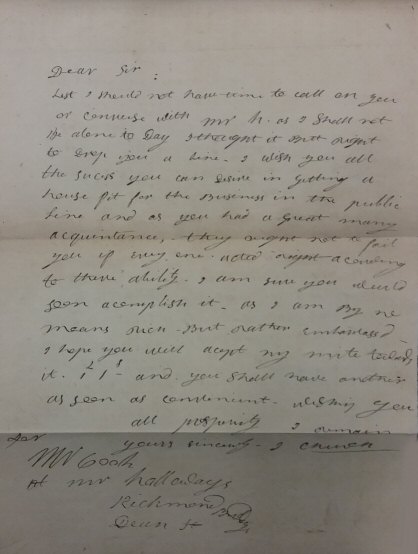 Dear Sir,
Lest I should not have time to call on you
or converse with Mr H. as I shall not
be alone to day I thought it But right
to drop you a line. I wish you all
the sucess you can desire in getting a
house fit for the Business in the public
line and as you had a great many
acquintance, they ought not to fail
you if every one acted right acording
to there ability. I am sure you would
soon acomplish it. as I am By no
means rich - But rather Embarassed
I hope you will acept my mite towards
it. and you shall have another
as soon as convenint. wishing you
all prosperity I remain
yours sincerly - J Church
for
Mr Cook
At Mr Halladays
Richmond
Dean St